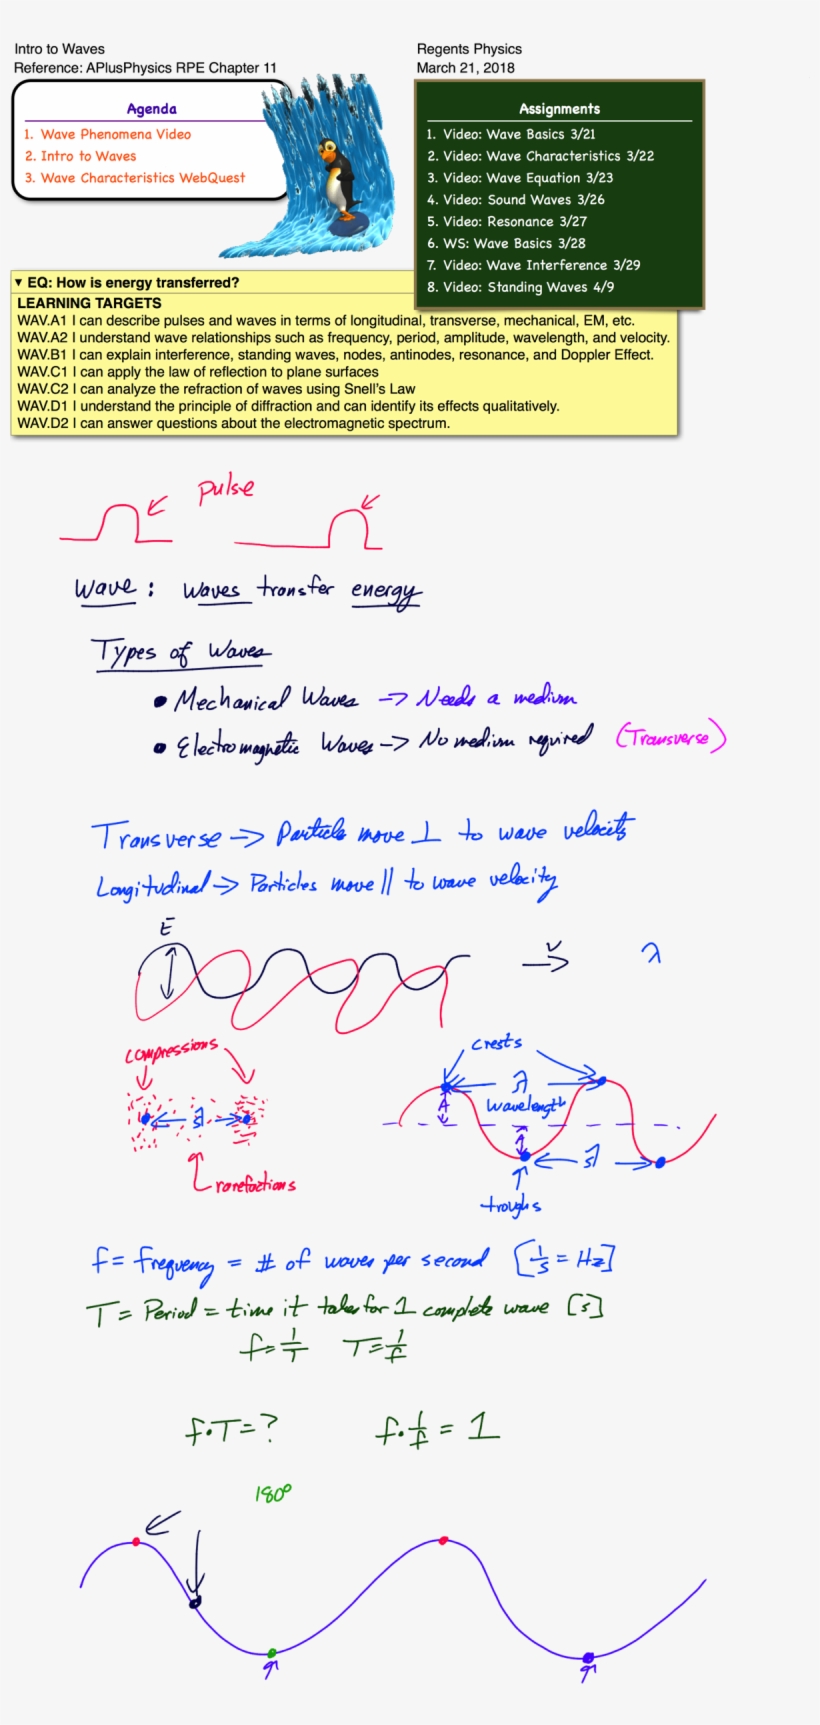 Intro to Waves
Reference: APlusPhysics RPE Chapter 11
Regents Physics
March 21, 2018
Agenda
1. Wave Phenomena Video
2. Intro to Waves
3. Wave Characteristics WebQuest
Assignments
1. Video: Wave Basics 3/21
2. Video: Wave Characteristics 3/22
3. Video: Wave Equation 3/23
4. Video: Sound Waves 3/26
5. Video: Resonance 3/27
6. WS: Wave Basics 3/28
7. Video: Wave Interference 3/29
8. Video: Standing Waves 4/9
▼ EQ: How is energy transferred?
LEARNING TARGETS
WAV.A1 I can describe pulses and waves in terms of longitudinal, transverse, mechanical, EM, etc.
WAV.A2 I understand wave relationships such as frequency, period, amplitude, wavelength, and velocity.
WAV.B1 I can explain interference, standing waves, nodes, antinodes, resonance, and Doppler Effect.
WAV.C1 I can apply the law of reflection to plane surfaces
WAV.C2 I can analyze the refraction of waves using Snell's Law
WAV.D1 I understand the principle of diffraction and can identify its effects qualitatively.
WAV.D2 I can answer questions about the electromagnetic spectrum.
pulse
Wave: Waves transfer energy
Types of Waves
• Mechanical Waves -> Needs a medium
• Electromagnetic Waves -> No medium required (Transverse)
Transverse -> Particles move ⊥ to wave velocity
Longitudinal -> Particles move || to wave velocity
E
v
λ
compressions
crests
λ
wavelength
A
λ
A
λ
rarefactions
troughs
f = frequency = # of waves per second [1/s = Hz]
T = Period = time it takes for 1 complete wave [s]
f = 1/T T = 1/f
f·T = ? f·1/f = 1
180°